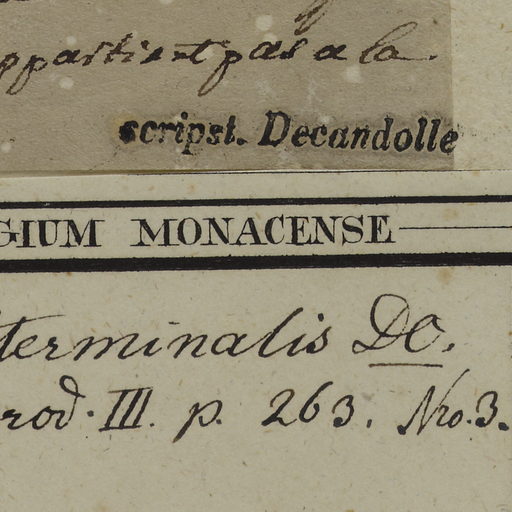 ppartient pas a la.
scripst. Decandolle
GIUM MONACENSE
terminalis DC.
rod. III. p. 263. Nro. 3.